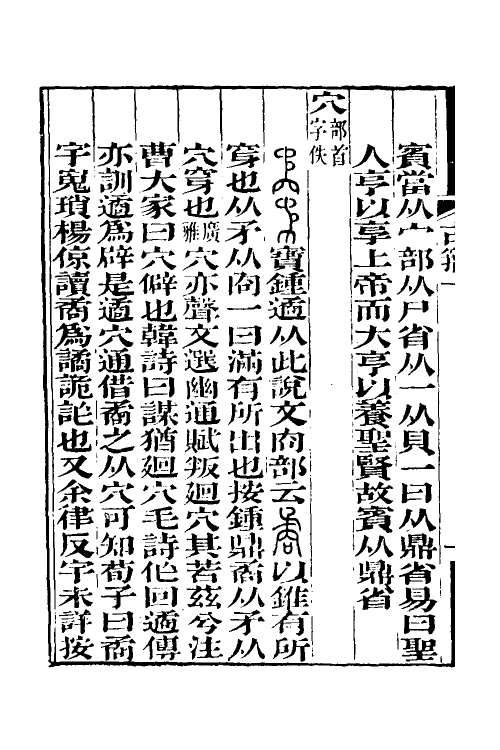 賓當从宀部从尸省从一从貝一曰从鼎省易曰聖
人亨以享上帝而大亨以養聖賢故賓从鼎省
穴部首字佚
寶鍾遹从此說文㕯部云矞以錐有所
穿也从矛从㕯一曰滿有所出也按鍾鼎矞从矛从
穴穿也廣雅穴亦聲文選幽通賦叛廻穴其若茲兮注
曹大家曰穴僻也韓詩曰謀猶廻穴毛詩作回遹傳
亦訓遹爲辟是遹穴通借矞之从穴可知荀子曰矞
宇嵬瑣楊倞讀矞爲譎詭訑也又余律反宇未詳按